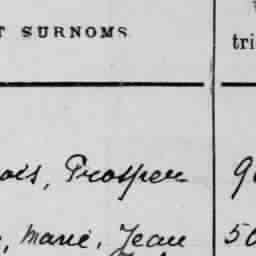 T SURNOMS
tri
ois, Prosper 9
, Marie, Jean 50